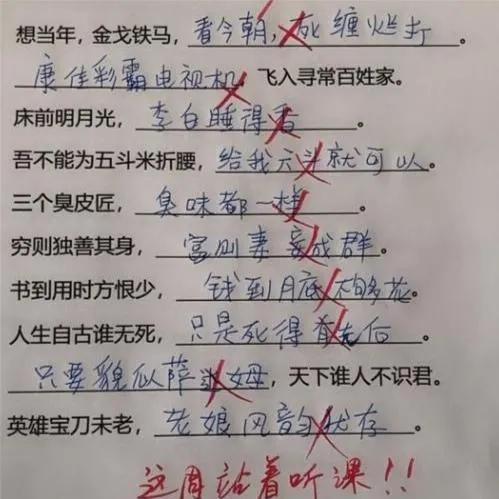 想当年，金戈铁马，看今朝，死缠烂打。
康佳彩霸电视机，飞入寻常百姓家。
床前明月光，李白睡得香。
吾不能为五斗米折腰，给我六斗就可以。
三个臭皮匠，臭味都一样。
穷则独善其身，富则妻妾成群。
书到用时方恨少，钱到月底不够花。
人生自古谁无死，只是死得有先后。
只要貌似萨达姆，天下谁人不识君。
英雄宝刀未老，老娘风韵犹存。
这周站着听课！！